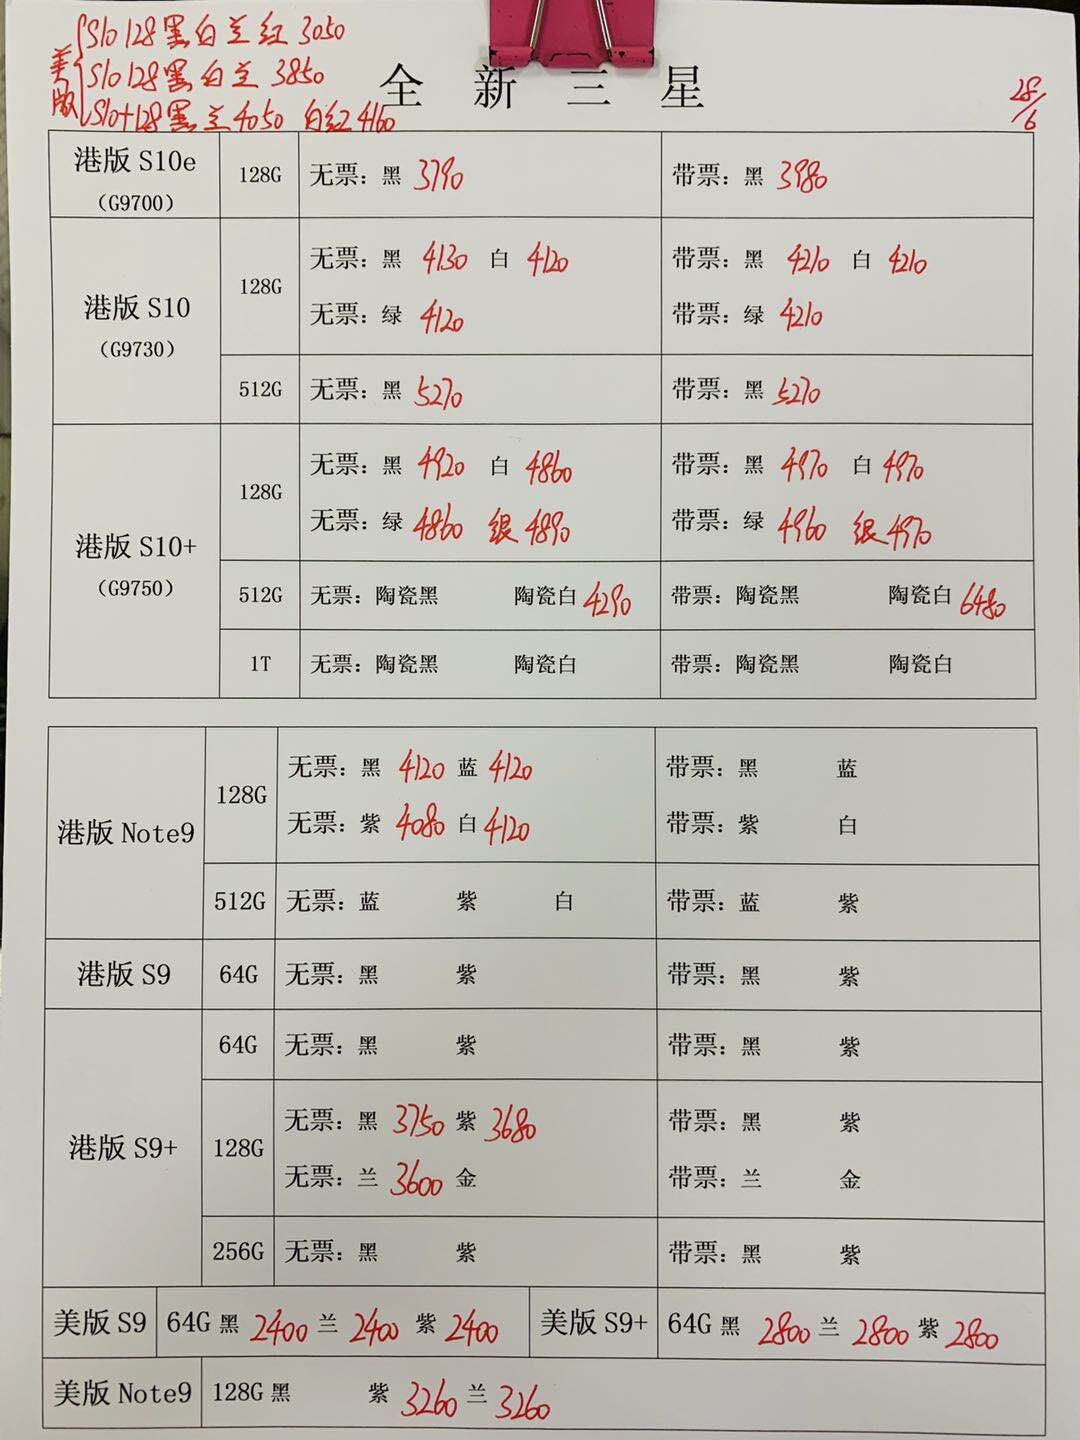 美版 S10 128黑白兰红 3050
S10 128黑白兰 3850
S10+128黑兰4050 白红4160
全新三星
28/6
港版 S10e
（G9700）
128G 无票：黑 3790 带票：黑 3980
港版 S10
（G9730）
128G 无票：黑 4130 白 4120 带票：黑 4210 白 4210
无票：绿 4120 带票：绿 4210
512G 无票：黑 5270 带票：黑 5270
港版 S10+
（G9750）
128G 无票：黑 4920 白 4860 带票：黑 4970 白 4970
无票：绿 4860 银 4890 带票：绿 4960 银 4970
512G 无票：陶瓷黑 陶瓷白 4290 带票：陶瓷黑 陶瓷白 6480
1T 无票：陶瓷黑 陶瓷白 带票：陶瓷黑 陶瓷白
港版 Note9
128G 无票：黑 4120 蓝 4120 带票：黑 蓝
无票：紫 4080 白 4120 带票：紫 白
512G 无票：蓝 紫 白 带票：蓝 紫
港版 S9 64G 无票：黑 紫 带票：黑 紫
港版 S9+
64G 无票：黑 紫 带票：黑 紫
128G 无票：黑 3750 紫 3680 带票：黑 紫
无票：兰 3600 金 带票：兰 金
256G 无票：黑 紫 带票：黑 紫
美版 S9 64G 黑 2400 兰 2400 紫 2400 美版 S9+ 64G 黑 2800 兰 2800 紫 2800
美版 Note9 128G 黑 紫 3260 兰 3260